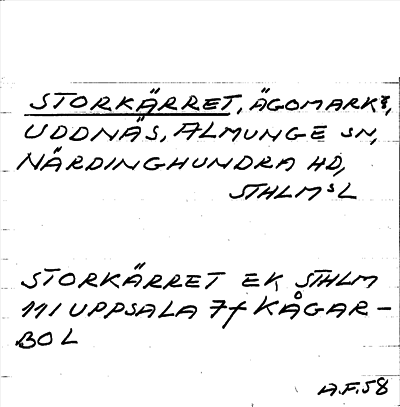 STORKÄRRET, ÄGOMARK t,
UDDNÄS, ALMUNGE SN,
NÄRDINGHUNDRA HD,
STHLMS L
STORKÄRRET EK STHLM
111 UPPSALA 7f KÅGAR-
BOL
A.F. 58